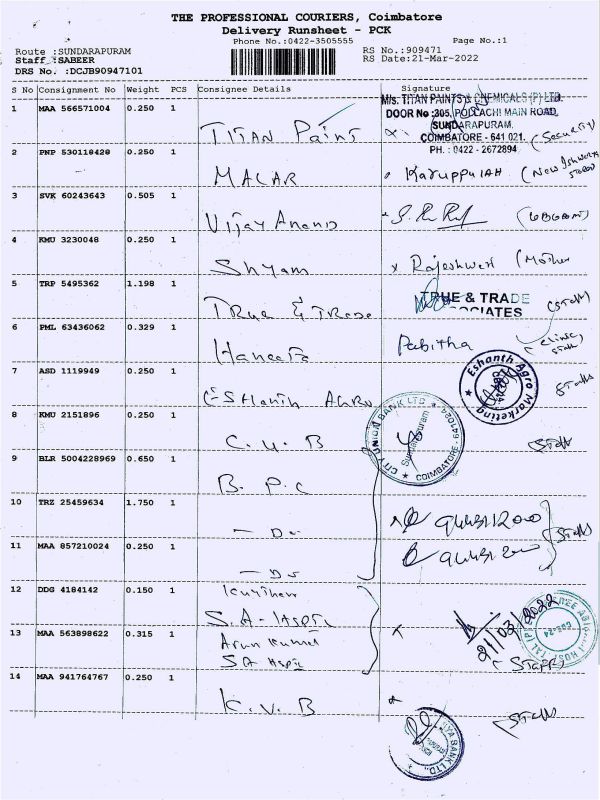 THE PROFESSIONAL COURIERS, Coimbatore
Delivery Runsheet - PCK
Phone No.:0422-3505555
Page No.:1
Route :SUNDARAPURAM
RS No.:909471
Staff :SABEER
RS Date:21-Mar-2022
DRS No. :DCJB90947101
S No Consignment No Weight PCS Consignee Details Signature
M/s. TITAN PAINTS & CHEMICALS (P) LTD.
DOOR No :305, POLLACHI MAIN ROAD,
SUNDARAPURAM,
COIMBATORE - 641 021.
PH. : 0422 - 2672894
1 MAA 566571004 0.250 1 TITAN Paint (Security)
2 PNP 530118428 0.250 1 MALAR Karuppuiah
3 SVK 60243643 0.505 1 Vijay Anand
4 KMU 3230048 0.250 1 Shyam Rajeshwari (Mother
5 TRP 5495362 1.198 1 True & Trade
TRUE & TRADE
ASSOCIATES
(Staff)
6 PML 63436062 0.329 1 Haneefa Pabitha (Clinic Staff
7 ASD 1119949 0.250 1 Eshanth Agro
Eshanth Agro Marketing
Staff
8 KMU 2151896 0.250 1 C. U. B
CITY UNION BANK LTD
Sundarapuram
COIMBATORE - 641024
Staff
9 BLR 5004228969 0.650 1 B. P. C
10 TRZ 25459634 1.750 1 - Do -
11 MAA 857210024 0.250 1 - Do -
Staff
12 DDG 4184142 0.150 1
S. A - Hspit
13 MAA 563898622 0.315 1 Arun Kumar
SA Hspit
21/03/2022
(Staff)
14 MAA 941764767 0.250 1 K. V. B
BANK LTD.
Staff